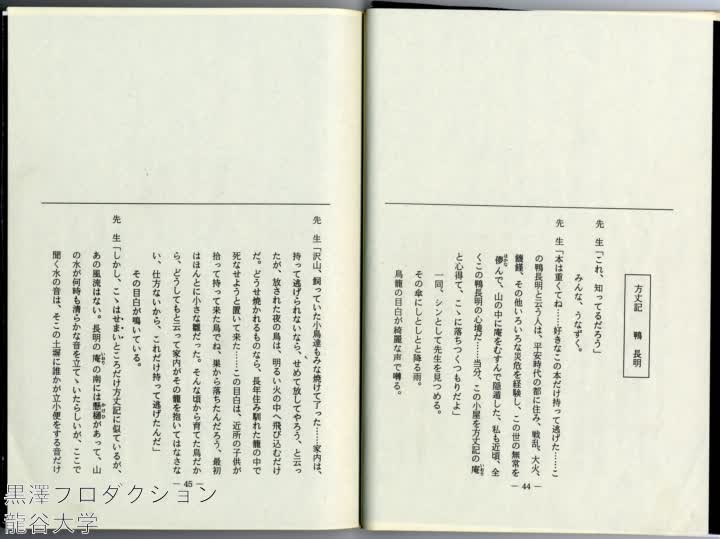 方丈記　鴨　長明
先　生「これ、知ってるだろう」
みんな、うなずく。
先　生「本は重くてね……好きなこの本だけ持って逃げた……こ
の鴨長明と云う人は、平安時代の都に住み、戦乱、大火、
饑饉、その他いろいろな災危を経験し、この世の無常を
儚んで、山の中に庵をむすんで隠遁した、私も近頃、全
くこの鴨長明の心境だ……当分、この小屋を方丈記の庵
と心得て、こゝに落ちつくつもりだよ」
一同、シンとして先生を見つめる。
その傘にしとしとと降る雨。
鳥籠の目白が綺麗な声で囀る。
― 44 ―
先　生「沢山、飼っていた小鳥達もみな焼けて了った……家内は、
持って逃げられないなら、せめて放してやろう、と云っ
たが、放された夜の鳥は、明るい火の中へ飛び込むだけ
だ。どうせ焼かれるものなら、長年住み馴れた籠の中で
死なせようと置いて来た……この目白は、近所の子供が
拾って持って来た鳥でね、巣から落ちたんだろう、最初
はほんとに小さな雛だった。そんな頃から育てた鳥だか
ら、どうしてもと云って家内がその籠を抱いてはなさな
い、仕方ないから、これだけ持って逃げたんだ」
その目白が鳴いている。
先　生「しかし、こゝはせまいところだけ方丈記に似ているが、
あの風流はない。長明の庵の南には懸樋があって、山
の水が何時も清らかな音を立てゝいたらしいが、ここで
聞く水の音は、そこの土塀に誰かが立小便をする音だけ
― 45 ―
黒澤プロダクション
龍谷大学